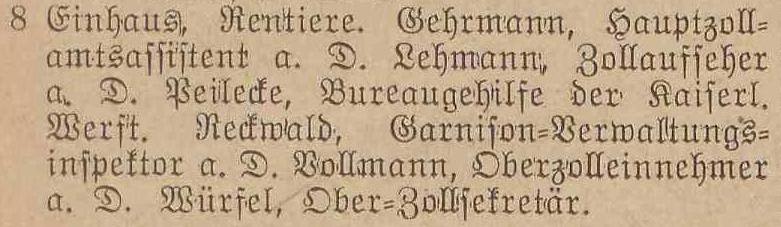 8 Einhaus, Rentiere. Gehrmann, Hauptzoll-
amtsassistent a. D. Lehmann, Zollaufseher
a. D. Peilecke, Bureaugehilfe der Kaiserl.
Werft. Reckwald, Garnison-Verwaltungs-
inspektor a. D. Vollmann, Oberzolleinnehmer
a. D. Würfel, Ober-Zollsekretär.